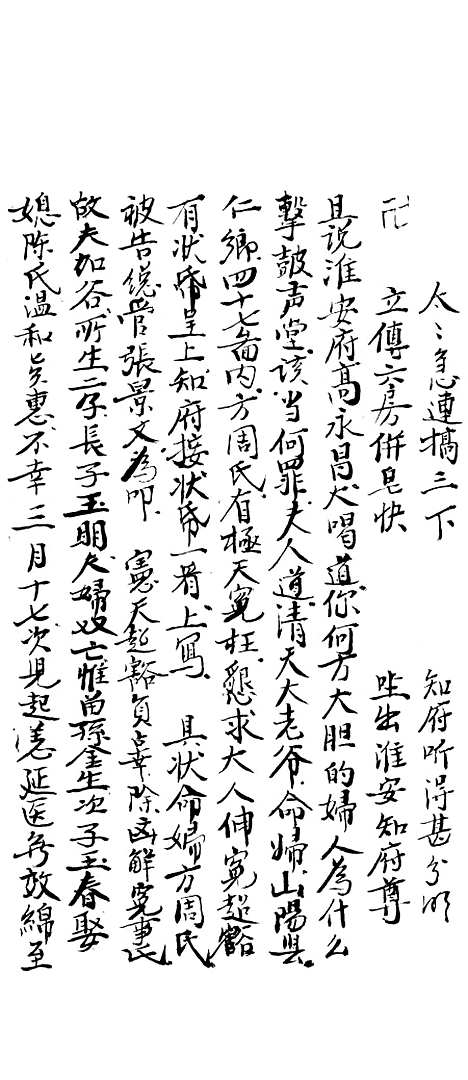 太〻急連擂三下　知府听得甚分明
立傳六房併皂快　唑出淮安知府尊
卍
且说淮安府高永昌大喝道你何方大胆的婦人為什么
擊鼓声堂该当何罪夫人道清天大老爷命婦山陽县
仁鄉四十七啚内方周氏有極天寃枉懇求大人伸寃超豁
有状帋呈上知府接状帋一看上寫　具状命婦方周氏
被告總管張景文為叩　憲天超豁負辜除凶觧寃事氏
故夫加谷所生二子長子玉明夫婦双亡惟畄孫金生次子玉春娶
媳陈氏温和贤惠不幸三月十七次児起恙延医无效綿至